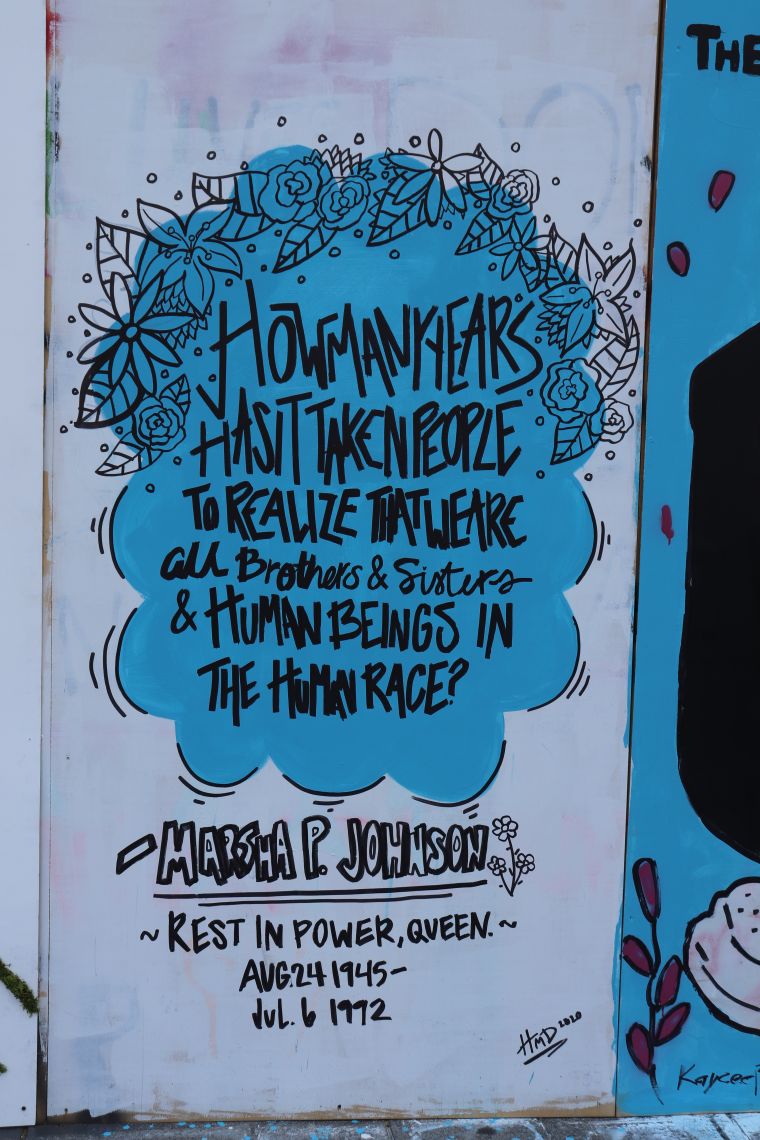 HOW MANY YEARS
HAS IT TAKEN PEOPLE
TO REALIZE THAT WE ARE
all Brothers & Sisters
& HUMAN BEINGS IN
THE HUMAN RACE?
-MARSHA P. JOHNSON
~ REST IN POWER, QUEEN. ~
AUG. 24 1945-
JUL. 6 1992
HMD 2020
THE